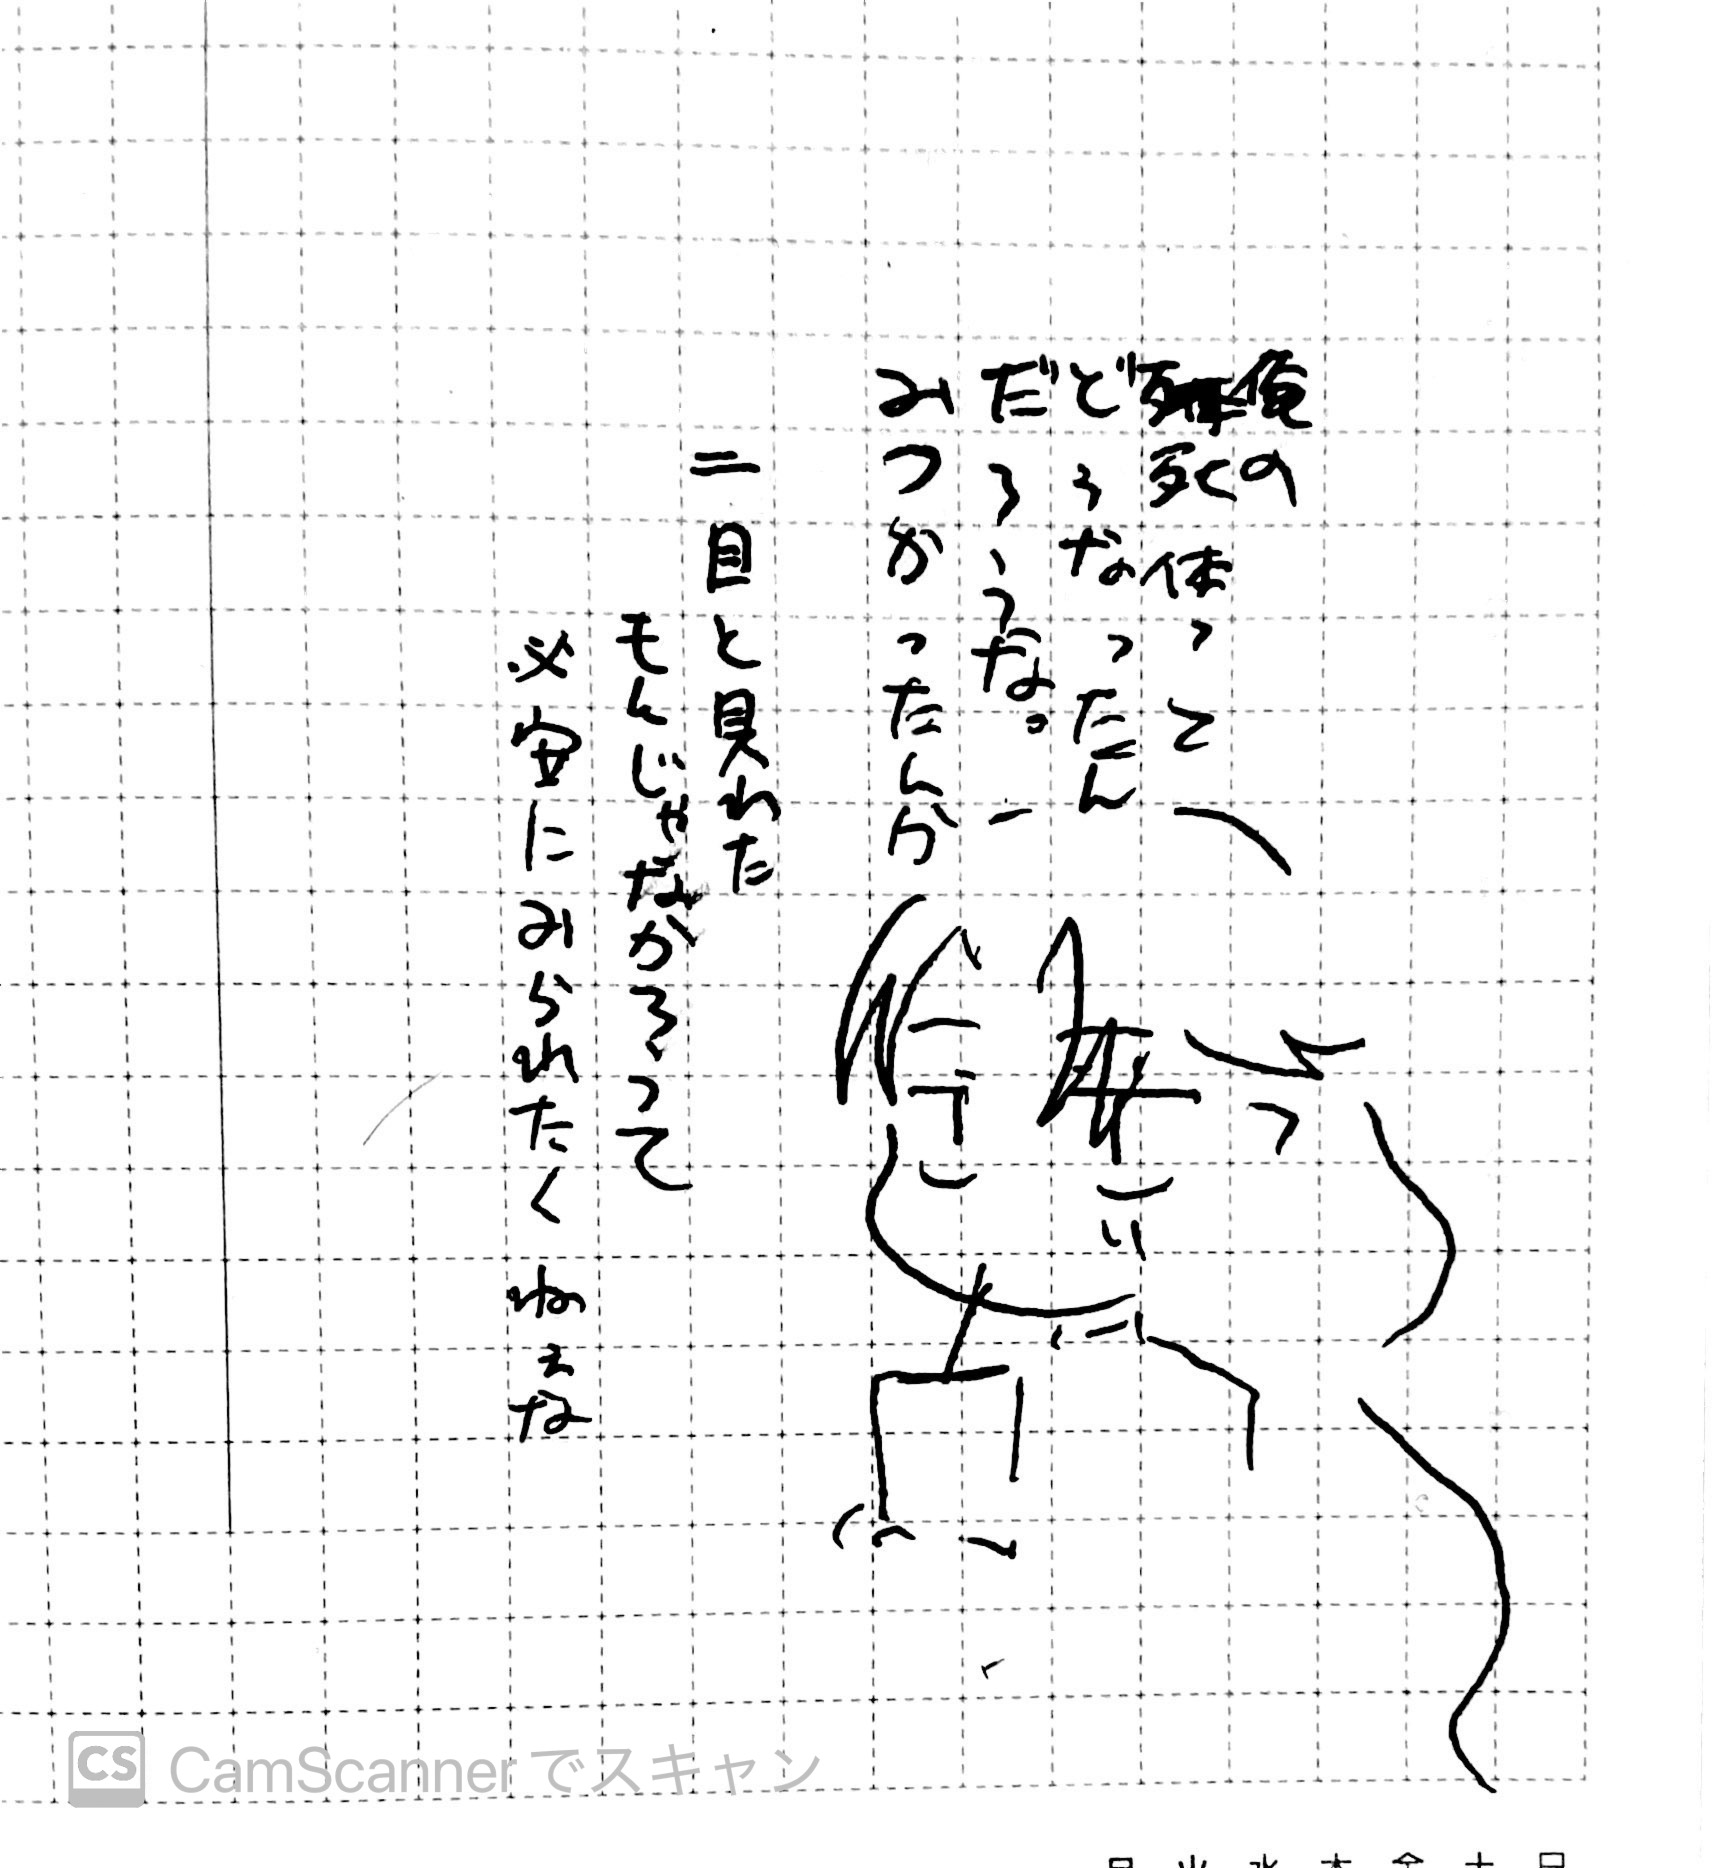 俺の
死体って
どうなったん
だろうな。
みつかったんか
二目と見れた
もんじゃなかろうって
必安にみられたくねぇな
CS CamScannerでスキャン
月 火 水 木 金 土 日